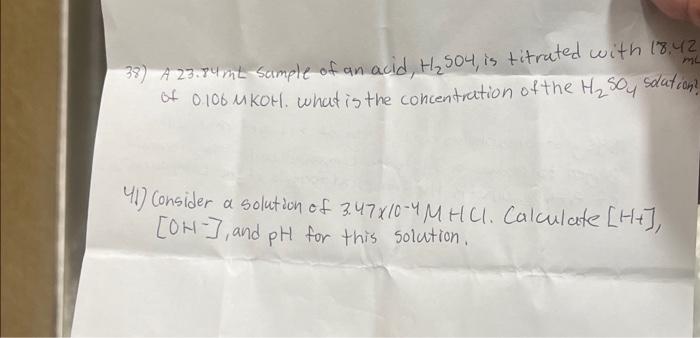 38) A 23.84mL sample of an acid, H2SO4, is titrated with 18.42 mL
of 0.106 MKOH. what is the concentration of the H2SO4 solution?
41) Consider a solution of 3.47x10-4 M HCl. Calculate [H+],
[OH-], and pH for this solution.